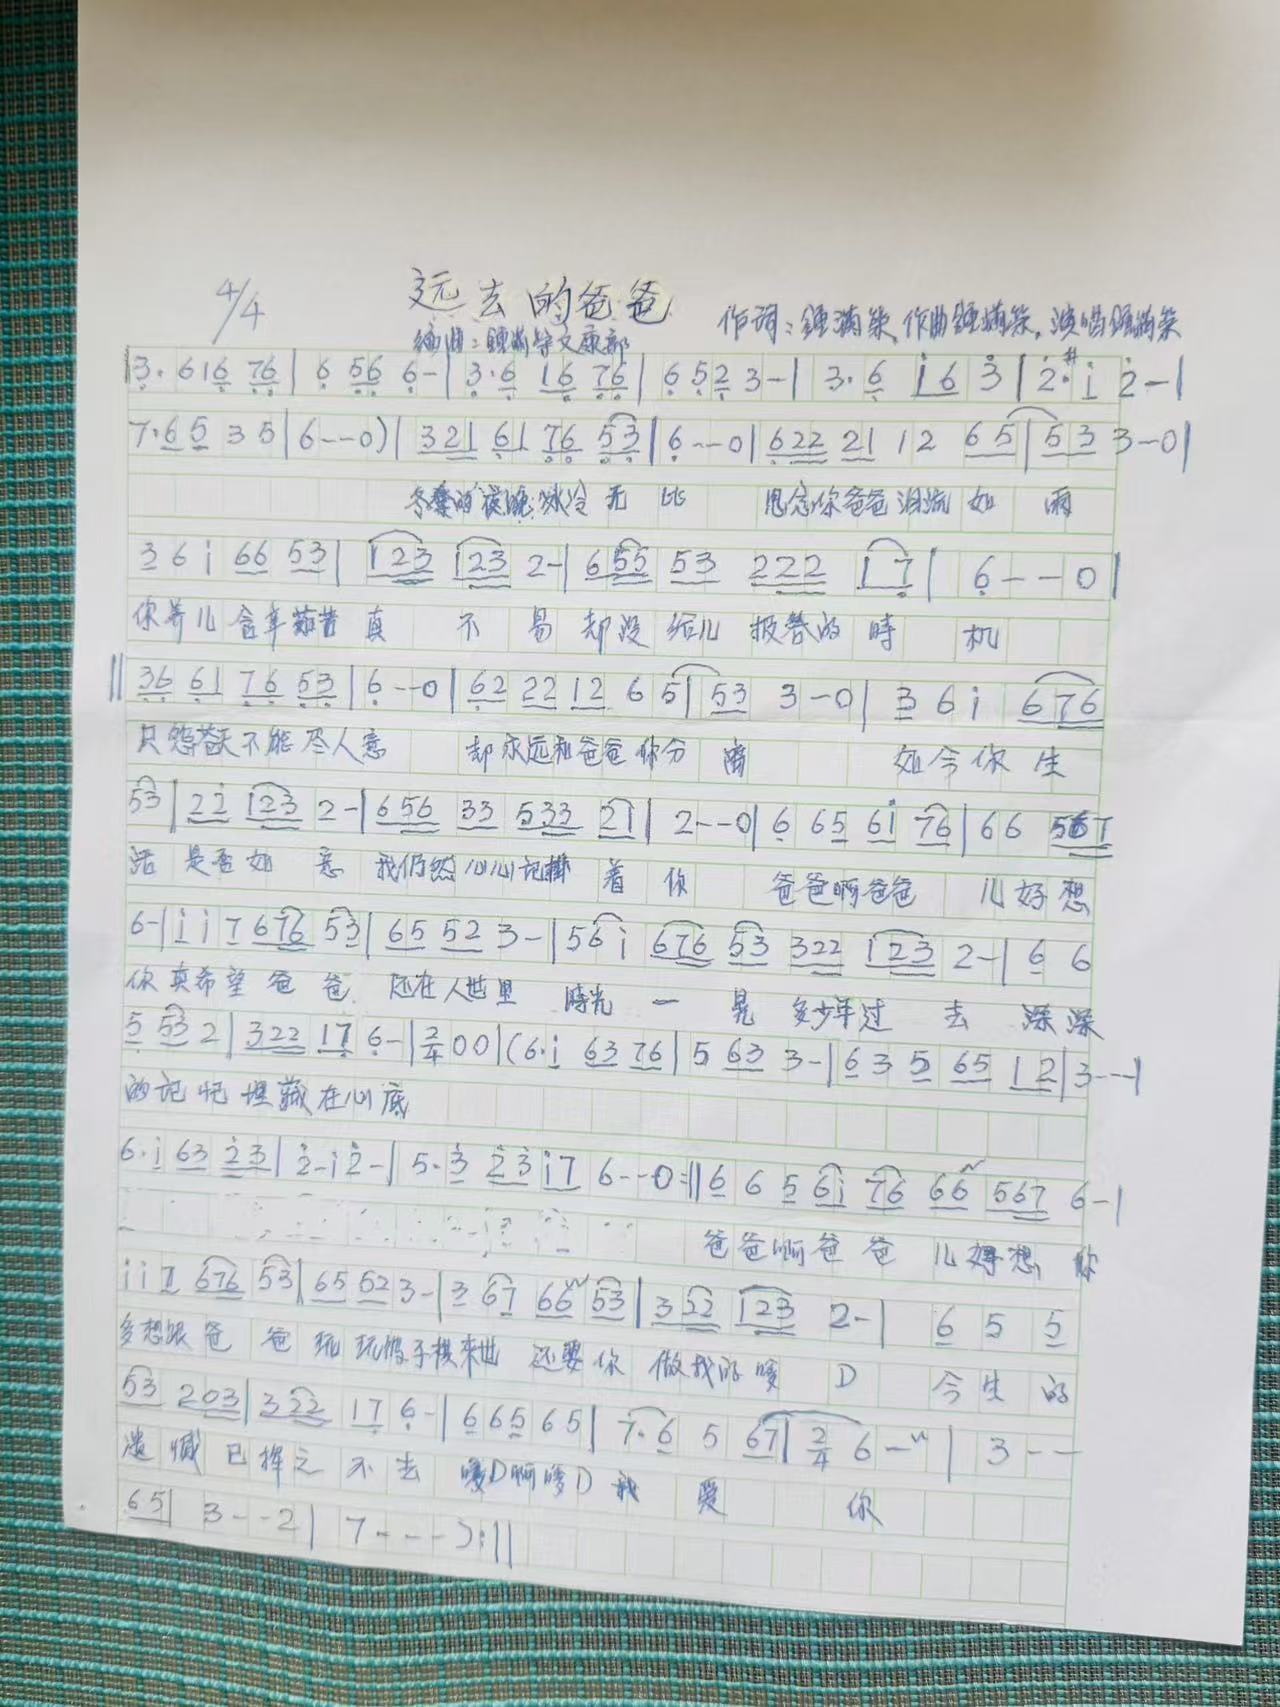 4/4 远去的爸爸 作词：鍾满 作曲鍾满 演唱鍾满
编曲：鍾满 文康部
3· 616 76 | 6 56 6- | 3·6 16 76 | 6 523 3- | 3·6 i6 3 | 2·#i 2- |
7·65 35 | 6--0) | 321 61 76 53 | 6--0 | 622 21 12 65 | 53 3-0 |
冬 的 冰冷无比 思念你爸爸泪流如雨
3 6 i 66 53 | 123 123 2- | 655 53 222 17 | 6--0 |
你养儿含辛茹苦真不易却没给儿报答的時机
|| 36 61 76 53 | 6--0 | 62 22 12 6 5 | 53 3-0 | 3 6 i 676
只怨苍天不能尽人意 却永远和爸爸你分离 如今你生
53 | 22 123 2- | 656 33 533 21 | 2--0 | 6 65 6i 76 | 66 567
活是否如意 我仍然心心记掛着你 爸爸啊爸爸 儿好想
6- | i i 7 676 53 | 65 52 3- | 56i 676 53 322 123 2- | 6 6
你真希望爸爸 还在人世里 時光一晃多少年过去 深深
5 53 2 | 322 17 6- | 2/4 00 | (6·i 63 76 | 5 63 3- | 63 5 65 12 | 3---|
的记忆埋藏在心底
6·i 63 23 | 2-i2- | 5·3 23 i7 6--0 :|| 6 6 5 6i 76 66 567 6- |
爸爸啊爸爸儿好想你
i i 7 676 53 | 65 52 3- | 3 67 66 53 | 3 22 123 2- | 6 5 5
多想跟爸爸玩玩 子棋来世还要你做我的嗲D 今生的
53 203 | 322 17 6- | 6 65 65 | 7·6 5 67 | 2/4 6- | 3--
遗憾已挥之不去 嗲D啊嗲D我爱你
65 | 3--2 | 7---) :||